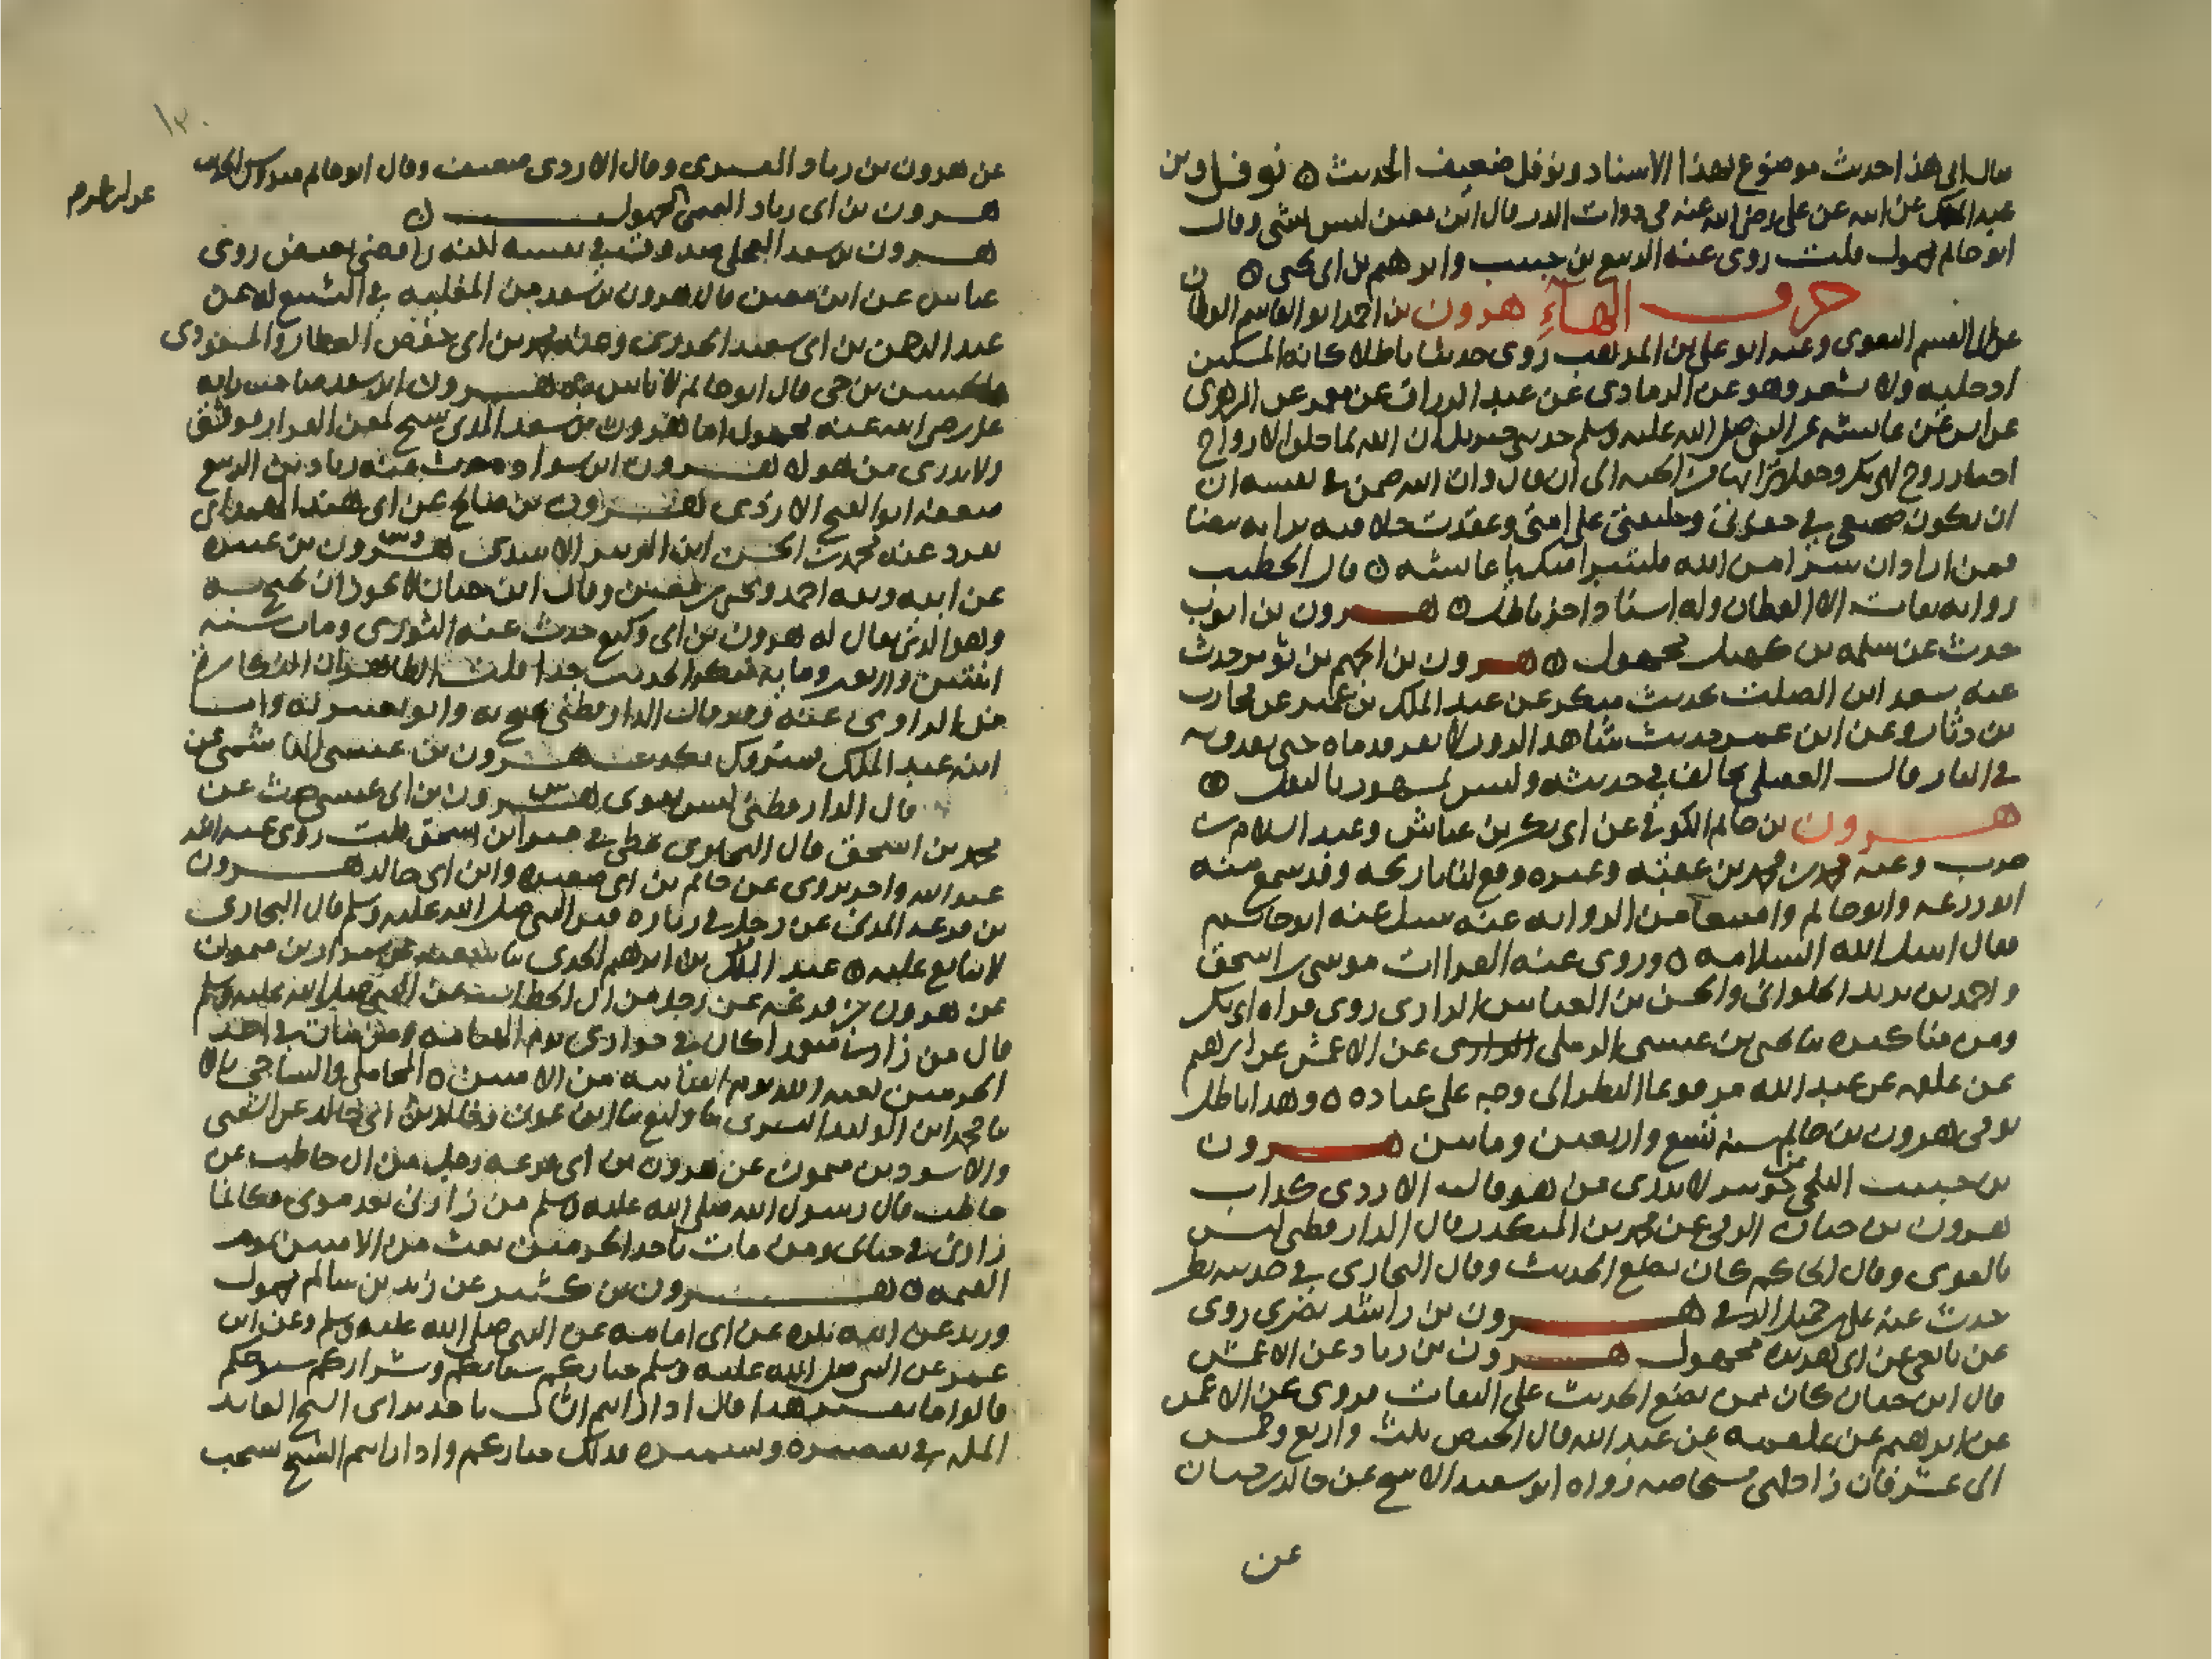 قال ابي هذا حديث موضوع بهذا الاسناد ونوفل ضعيف الحديث نوفل بن
عبد الملك عن ابيه عن علي رضي الله عنه في ذوات الدر قال ابن معين ليس بشي وقال
ابو حاتم مجهول قلت روى عنه الربيع بن حبيب وابرهيم بن ابي يحيى
حرف الهآء هرون بن احمد ابو القاسم القطان
عن ابي القسم البغوي وعنه ابو علي بن المذهب روى حديثا باطلا كانه المسكين
ادخل عليه ولا يشعر وهو عن الرمادي عن عبد الرزاق عن معمر عن الزهري
عن عروة عن عايشه عن النبي صلى الله عليه وسلم حدثني جبريل ان الله لما خلق الارواح
اختار روح ابي بكر وجعل ترابها من الجنه الى ان قال وان الله ضمن في نفسه ان
ان يكون ضجيعي في حفرتي وخليفتي على امتي وعقدت خلافته براية بيضا
قال الخطيب
رواته ثقات الا القطان وله اسناد اخر باطل هرون بن ايوب
حدث عن سلمه بن كهيل مجهول هرون بن الجهم بن ثوير حدث
عنه سعد ابن الصلت بحديث منكر عن عبد الملك بن عمير عن محارب
بن دثار وعن ابن عمر حديث شاهد الزور لا تقر قدماه حتى يقذف به
في النار قال العقيلي يخالف في حديثه وليس بمشهور بالنقل
هرون بن حاتم الكوفي عن ابي بكر بن عياش وعبد السلام بن
حرب وعنه محمد بن محمد بن عقبه وغيره وقع لنا تاريخه وقد سمع منه
ابو زرعه وابو حاتم وامتنعا من الروايه عنه سئل عنه ابو حاتم
فقال اسئل الله السلامه وروى عنه القراات موسى بن اسحق
واحمد بن يزيد الحلواني والحسن بن العباس الرازي روى قراه ابي بكر
ومن مناكيره ثنا يحيى بن عيسى الرملي عن الاعمش عن ابرهيم
عن علقمه عن عبد الله مرفوعا النظر الى وجه علي عباده وهذا باطل
توفي هرون بن حاتم سنه تسع واربعين ومايتين هرون
بن حبيب البلخي عن جويبر لا يدرى من هو قال الازدي كذاب
هرون بن حيان الرقي عن محمد بن المنكدر قال الدارقطني ليس
بالقوي وقال الحاكم كان يضع الحديث وقال البخاري في حديثه نظر
حدث عنه علي بن جميل الرقي هرون بن راشد بصري روى
عن نافع عن ابي هريره مجهول هرون بن زياد عن الاعمش
قال ابن حبان كان ممن يضع الحديث على الثقات يروي عن الاعمش
عن ابرهيم عن علقمه عن عبد الله قال الحيض ثلث واربع وخمس
الى عشر فان زاد فهي مستحاضه رواه ابو سعيد الاشج عن خالد بن حيان
عن
١٣٠
عن هرون بن زياد القشيري وقال الازدي ضعيف وقال ابو حاتم متروك الحديث
هرون بن ابي زياد التميمي مجهول
هرون بن سعد العجلي صدوق في نفسه لكنه رافضي بغيض روى
عباس عن ابن معين قال هرون بن سعد من المغليه في التشيع له عن
عبد الرحمن بن ابي سعيد الخدري وعنه محمد بن ابي حفص العطار والمسعودي
والحسن بن حي قال ابو حاتم لا باس به هرون ابن سعد صاحب رايه
علي رضي الله عنه مجهول اما هرون بن سعد المدني شيخ لمعن القزاز فوثق
ولا يدرى من هو له هرون ابن سوار حدث عنه زياد بن الربيع
ضعفه ابو الفتح الازدي هرون بن صالح عن ابي هند الهمداني
تفرد عنه محمد بن الحسن ابن الزبير الاسدي هرون بن عنتره
عن ابيه وثقه احمد ويحيى بن معين وقال ابن حبان لا يجوز ان يحتج به
وهو الذي يقال له هرون بن ابي وكيع حدث عنه الثوري ومات سنه
اثنتين واربعين ومايه منكر الحديث جدا قلت الظاهر ان النكاره
من الراوي عنه وقد قال الدارقطني يحتج به وابوه يعتبر له واما
ابنه عبد الملك متروك يكذب هرون بن عيسى الهاشمي عن
قال الدارقطني ليس بقوي هرون بن ابي عيسى حدث عن
محمد بن اسحق قال البخاري خطئ في حديث ابن اسحق قلت روى عنه ابنه
عبد الله واخر يروي عن حاتم بن ابي صغيره وابن ابي خالد هرون
بن قزعه المدني عن رجل في زياره قبر النبي صلى الله عليه وسلم قال البخاري
لا يتابع عليه عبد الملك بن ابرهيم الجدي ثنا شعبه عن سوار بن ميمون
عن هرون بن قزعه عن رجل من ال الخطاب عن النبي صلى الله عليه وسلم
قال من زارني متعمدا كان في جواري يوم القيامه ومن مات في احد
الحرمين بعثه الله يوم القيامه من الامنين المحاملي والساجي قالا
ثنا محمد ابن الوليد البسري ثنا وكيع ثنا ابن عون وخالد بن ابي خالد عن الشعبي
والاسود بن ميمون عن هرون بن ابي قزعه رجل من ال حاطب عن
حاطب قال رسول الله صلى الله عليه وسلم من زارني بعد موتي فكانما
زارني في حياتي ومن مات باحد الحرمين بعث من الامنين يوم
القيمه هرون بن كثير عن زيد بن سالم مجهول
وزيد عن ابيه نكره عن ابي امامه عن النبي صلى الله عليه وسلم وعن ابن
عمر عن النبي صلى الله عليه وسلم خياركم شبابكم وشراركم شيوخكم
قالوا ما تفسير هذا قال اذا رايتم الشاب ياخذ براي الشيخ العابد
وتشميره فذلك خياركم واذا رايتم الشيخ